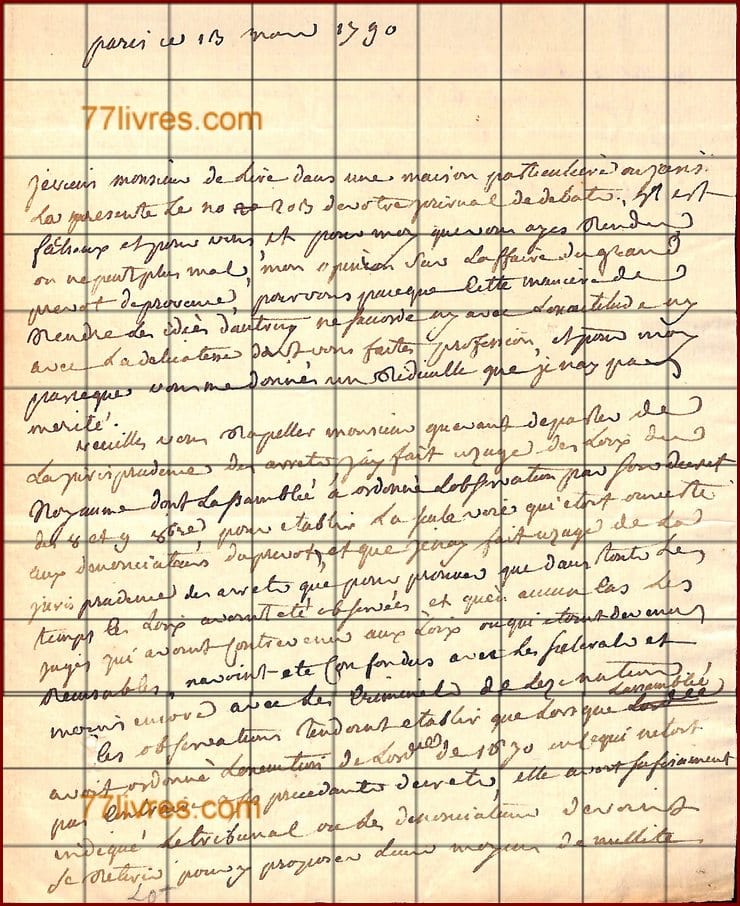 paris ce 13 mars 1790
77livres.com
je viens monsieur de lire dans une maison particuliere ou jarris
la presente le no 203 de votre journal de debats. Il est
facheux et pour vous et pour moy que vous ayes rendu
on ne peut plus mal, mon opinion sur laffaire du grand
prevot de provence, pour vous parceque cette maniere de
rendre les idées dautruy ne saccorde ny avec lexactitude ny
avec la delicatesse dont vous faites profession, et pour moy
parceque vous me donnés un ridicule que je nay pas
merité.
veuilles vous rapeller monsieur quavant de parler de
la jurisprudence des arrets jay fait uzage des loix du
royaume dont lassamblée à ordonné lobservation par son decret
des 8 et 9 8bre pour etablir la seule voie qui etoit ouverte
aux denonciateurs du prevot, et que je nay fait uzage de la
juris prudence des arrets que pour prouver que dans tout les
temps les loix avoint eté observées et quen aucun cas les
juges qui avoint contrevenu aux loix ou qui etoint devenus
recusables, navoint eté confondus avec les scelerats et
moins encore avec les criminels de leze nation.
ces observations tendoint etablir que lorsque lassamblée
avoit ordonné lexecution de lordce de 1670 en ce qui netoit
pas contraire a ses precedants decrets, elle avoit sufisament
77livres.com
indiqué le tribunal ou les denonciateurs devoint
se retirer pour y proposer leurs moyens de nullité